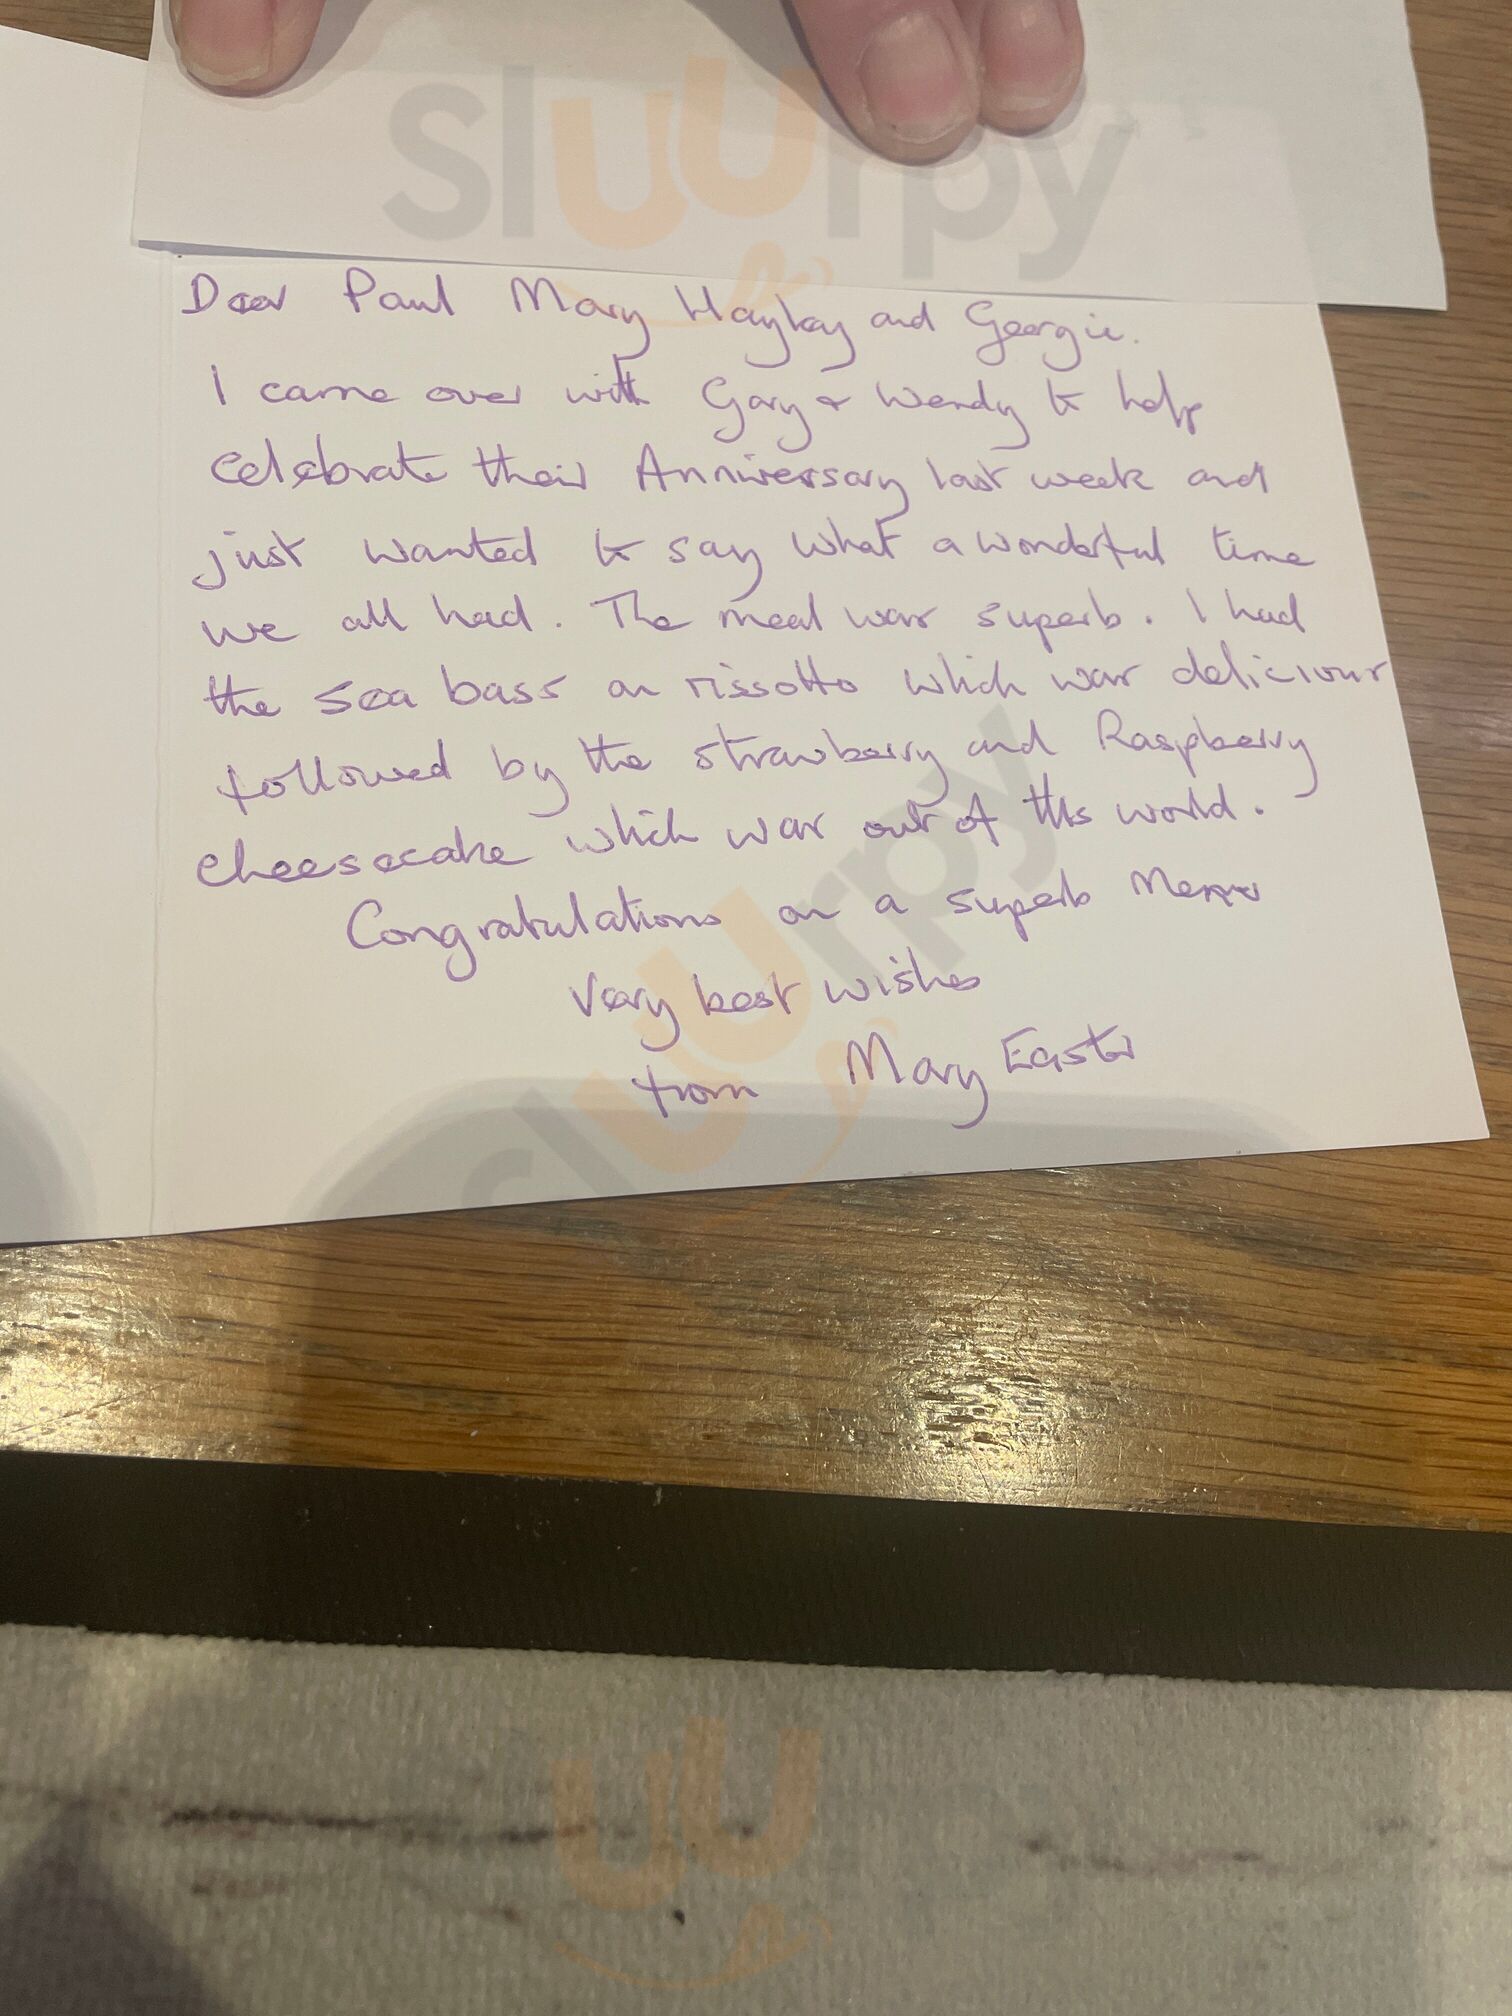 sluurpy
Dear Paul Mary Hayley and Georgie.
I came over with Gary & Wendy to help
celebrate their Anniversary last week and
just wanted to say what a wonderful time
we all had. The meal was superb. I had
the sea bass on rissotto which was delicious
followed by the strawberry and Raspberry
cheesecake which was out of this world.
Congratulations on a superb Menu
Very best wishes
from Mary Easter
sluurpy
sluurpy